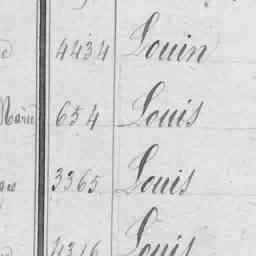 4434 Louin
Marie 654 Louis
3365 Louis
4316 Louis